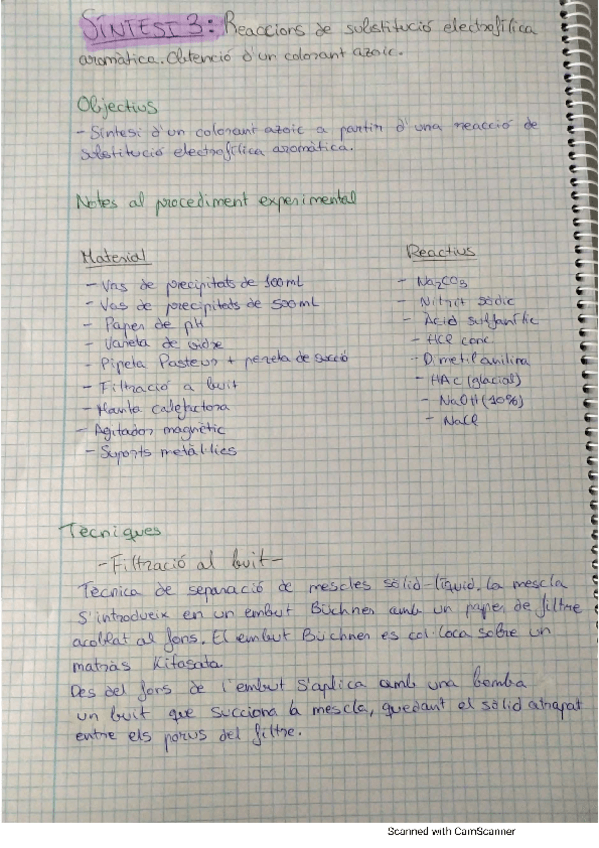 SÍNTESI 3: Reaccions de substitució electrofílica
aromàtica. Obtenció d'un colorant azoic.
Objectius
- Síntesi d'un colorant azoic a partir d'una reacció de
substitució electrofílica aromàtica.
Notes al procediment experimental
Material
- Vas de precipitats de 100mL
- Vas de precipitats de 500mL
- Paper de pH
- Vareta de vidre
- Pipeta Pasteur + pereta de succió
- Filtració a buit
- Manta calefactora
- Agitador magnètic
- Suports metàl·lics
Reactius
- Na2CO3
- Nitrit sòdic
- Àcid sulfanílic
- HCl conc
- Dimetilanilina
- HAc (glacial)
- NaOH (10%)
- NaCl
Tècniques
- Filtració al buit -
Tècnica de separació de mescles sòlid-líquid. La mescla
s'introdueix en un embut Büchner amb un paper de filtre
acoblat al fons. El embut Büchner es col·loca sobre un
matràs Kitasata.
Des del fons de l'embut s'aplica amb una bomba
un buit que succiona la mescla, quedant el sòlid atrapat
entre els porus del filtre.
Scanned with CamScanner